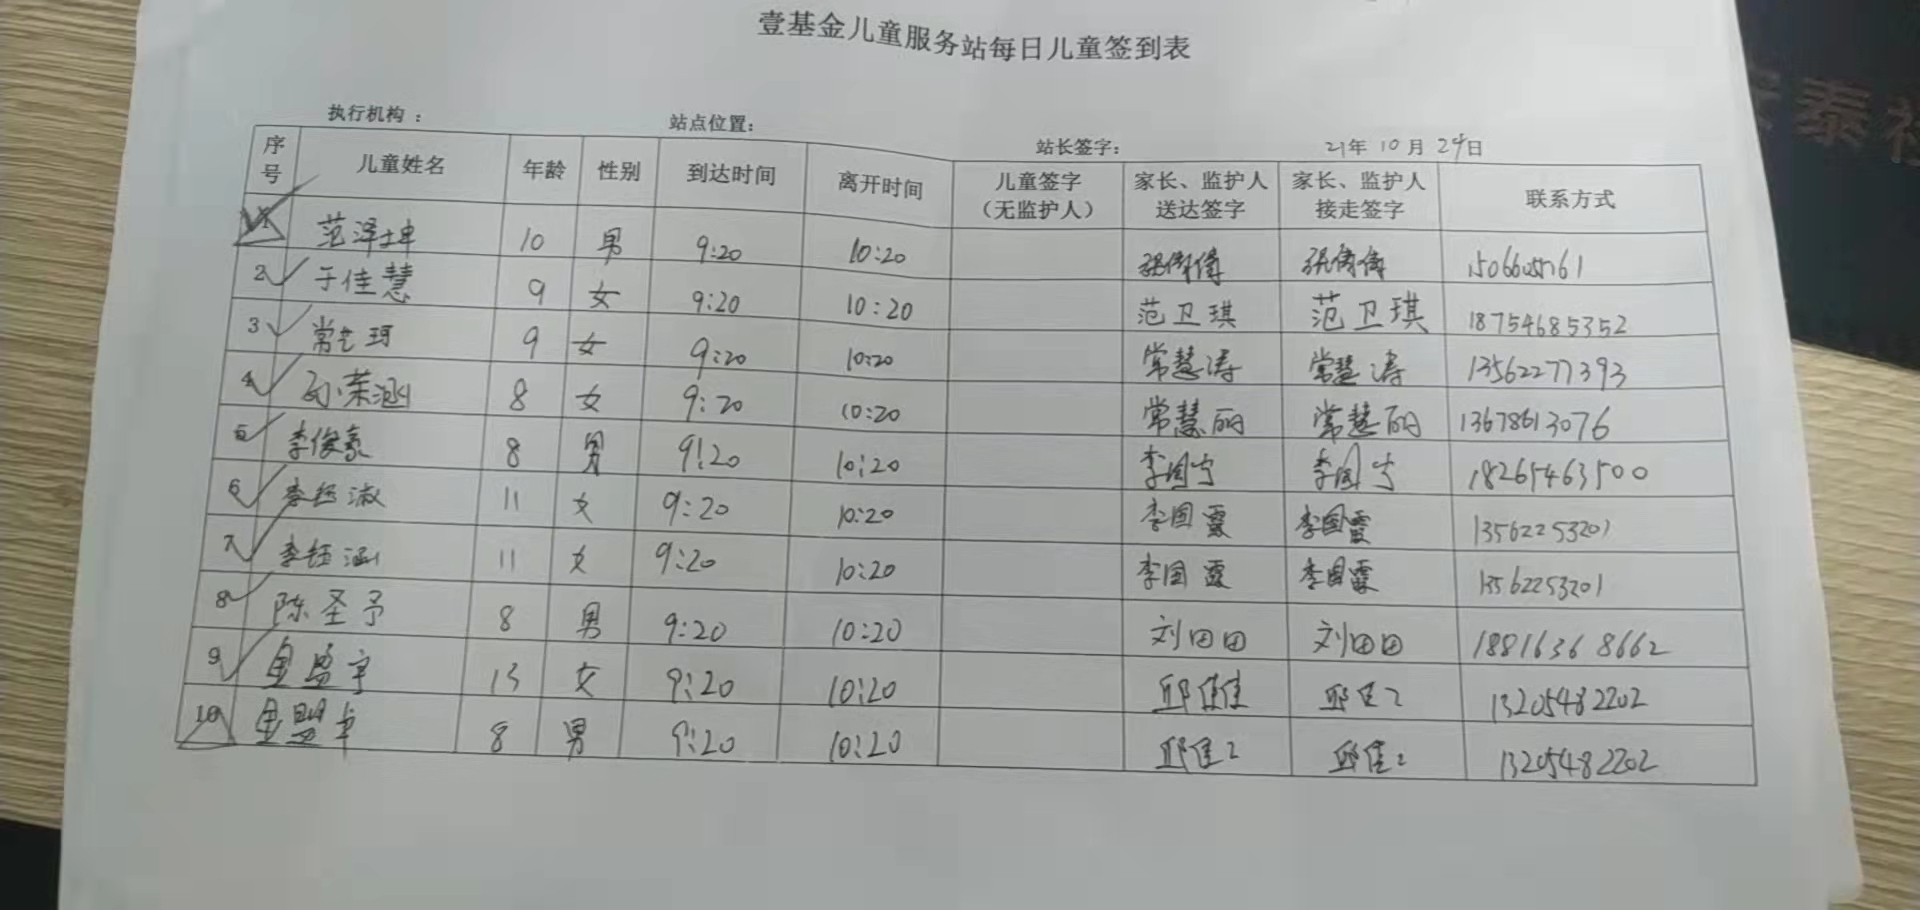 壹基金儿童服务站每日儿童签到表
执行机构： 站点位置： 站长签字： 21年 10月 24日
序号 儿童姓名 年龄 性别 到达时间 离开时间 儿童签字（无监护人） 家长、监护人送达签字 家长、监护人接走签字 联系方式
1 范泽坤 10 男 9:20 10:20
2 于佳慧 9 女 9:20 10:20 范卫琪 范卫琪 18754685352
3 常艺珂 9 女 9:20 10:20 常慧涛 常慧涛 13562277393
4 孙荣涵 8 女 9:20 10:20 常慧丽 常慧丽 13678613076
5 李俊豪 8 男 9:20 10:20 李国宁 李国宁 18265463500
6 李钰淑 11 女 9:20 10:20 李国霞 李国霞 13562253201
7 李钰涵 11 女 9:20 10:20 李国霞 李国霞 13562253201
8 陈圣予 8 男 9:20 10:20 刘田田 刘田田 18816368662
9 13 女 9:20 10:20 邱佳佳 邱佳2 13205482202
10 8 男 9:20 10:20 邱佳2 邱佳2 13205482202
泰社